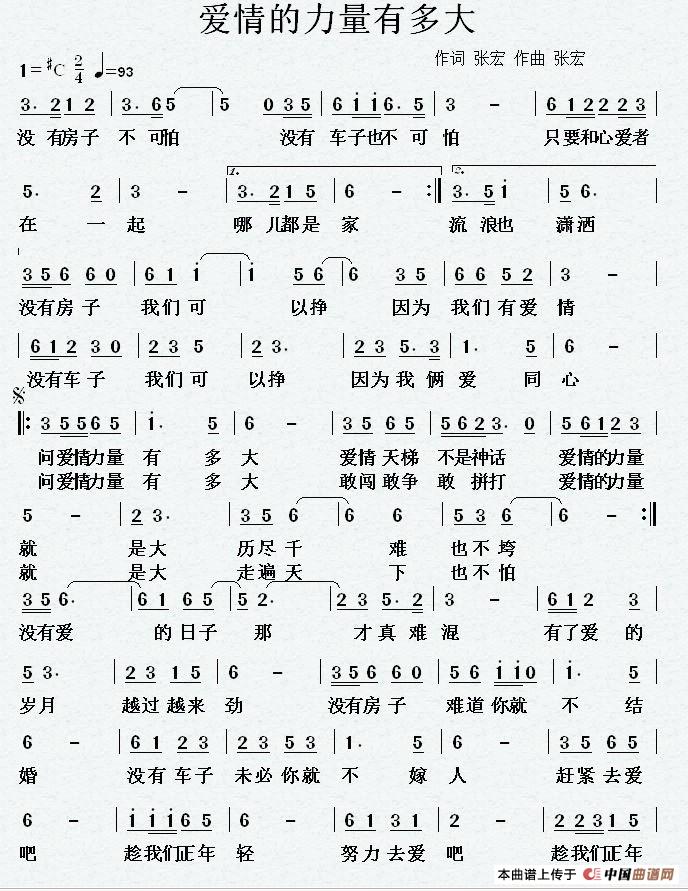 爱情的力量有多大
作词 张宏 作曲 张宏
1=#C 2/4 ♩=93
3. 2 1 2 | 3. 6 5 | 5 0 3 5 | 6 i i 6. 5 | 3 - | 6 1 2 2 2 3 |
没 有房子 不 可怕 没有 车子也不 可 怕 只要和心爱者
5. 2 | 3 - | 1. 3. 2 1 5 | 6 - :| 2. 3. 5 i | 5 6. |
在 一 起 哪 儿都是 家 流 浪也 潇洒
3 5 6 6 0 | 6 1 i | i 5 6 | 6 3 5 | 6 6 5 2 | 3 - |
没有房子 我们可 以挣 因为 我们有爱 情
6 1 2 3 0 | 2 3 5 | 2 3. | 2 3 5. 3 | 1. 5 | 6 - |
没有车子 我们可 以挣 因为我 俩 爱 同 心
𝄋
|: 3 5 5 6 5 | i. 5 | 6 - | 3 5 6 5 | 5 6 2 3. 0 | 5 6 1 2 3 |
问爱情力量 有 多 大 爱情 天梯 不是神话 爱情的力量
问爱情力量 有 多 大 敢闯敢争 敢 拼打 爱情的力量
5 - | 2 3. | 3 5 6 | 6 6 | 5 3 6 | 6 - :|
就 是大 历尽千 难 也不垮
就 是大 走遍天 下 也不怕
3 5 6. | 6 1 6 5 | 5 2. | 2 3 5. 2 | 3 - | 6 1 2 3 |
没有爱 的日子 那 才真难 混 有了爱 的
5 3. | 2 3 1 5 | 6 - | 3 5 6 6 0 | 5 6 i i 0 | i. 5 |
岁月 越过越来 劲 没有房子 难道你就 不 结
6 - | 6 1 2 3 | 2 3 5 3 | 1. 5 | 6 - | 3 5 6 5 |
婚 没有车子 未必你就 不 嫁 人 赶紧去爱
6 - | i i i 6 5 | 6 - | 6 1 3 1 | 2 - | 2 2 3 1 5 |
吧 趁我们正年 轻 努力去爱 吧 趁我们正年
本曲谱上传于 中国曲谱网